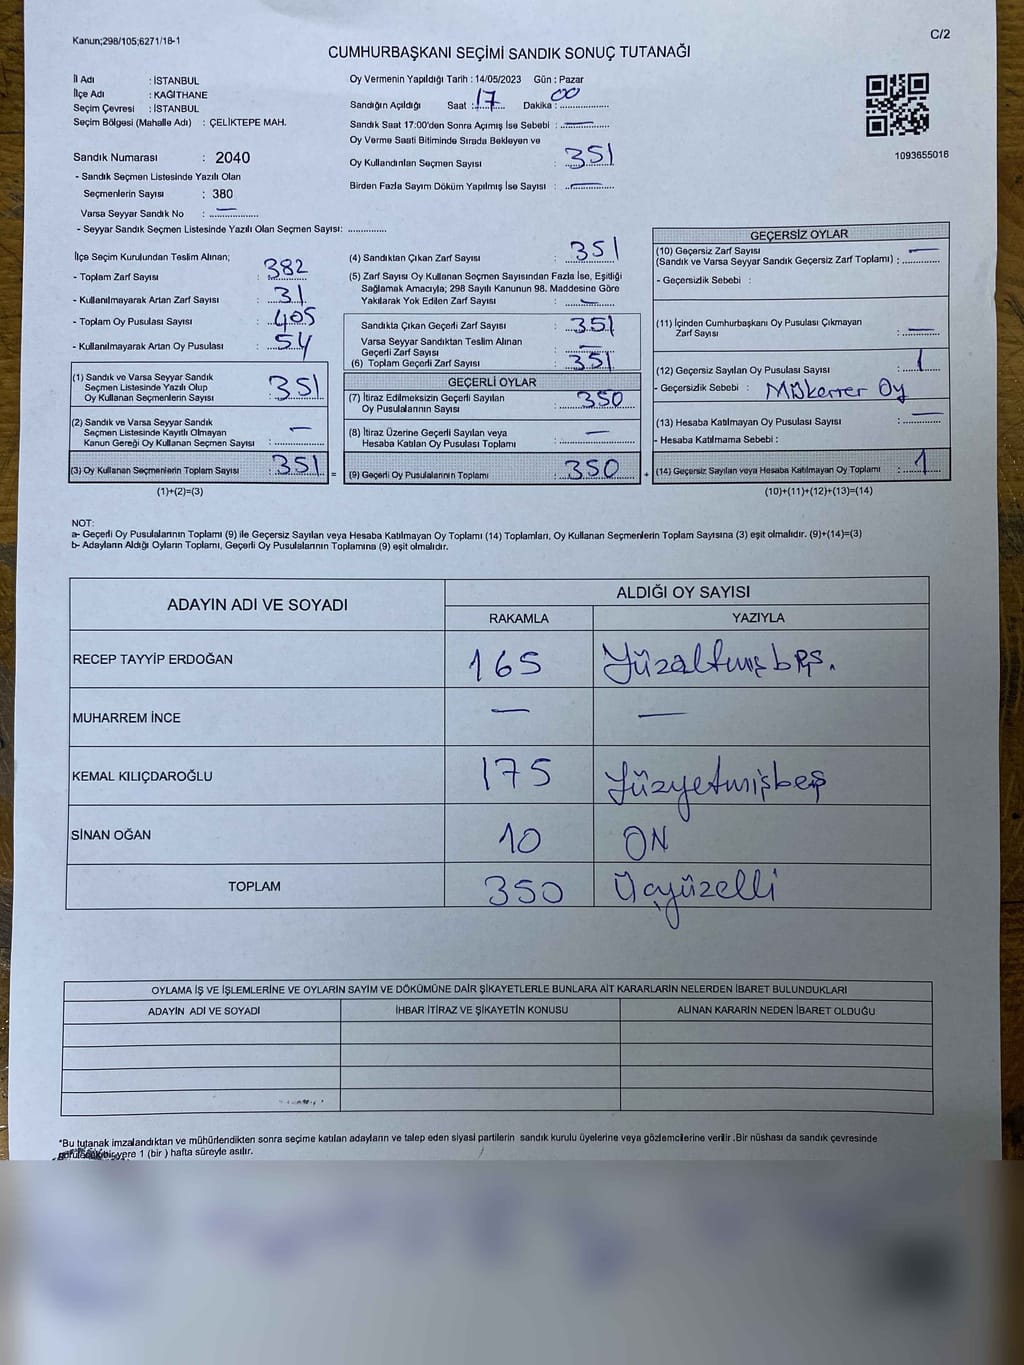 Kanun;298/105;6271/18-1
C/2
CUMHURBAŞKANI SEÇİMİ SANDIK SONUÇ TUTANAĞI
İl Adı : İSTANBUL
İlçe Adı : KAĞITHANE
Seçim Çevresi : İSTANBUL
Seçim Bölgesi (Mahalle Adı) : ÇELİKTEPE MAH.
Sandık Numarası : 2040
- Sandık Seçmen Listesinde Yazılı Olan
Seçmenlerin Sayısı : 380
Varsa Seyyar Sandık No : —
- Seyyar Sandık Seçmen Listesinde Yazılı Olan Seçmen Sayısı: ..............
Oy Vermenin Yapıldığı Tarih : 14/05/2023 Gün : Pazar
Sandığın Açıldığı Saat : 17 Dakika : 00
Sandık Saat 17:00'den Sonra Açımış İse Sebebi : —
Oy Verme Saati Bitiminde Sırada Bekleyen ve
Oy Kullandırılan Seçmen Sayısı : 351
Birden Fazla Sayım Döküm Yapılmış İse Sayısı : —
1093655018
İlçe Seçim Kurulundan Teslim Alınan;
- Toplam Zarf Sayısı : 382
- Kullanılmayarak Artan Zarf Sayısı : 31
- Toplam Oy Pusulası Sayısı : 405
- Kullanılmayarak Artan Oy Pusulası : 54
(1) Sandık ve Varsa Seyyar Sandık
Seçmen Listesinde Yazılı Olup
Oy Kullanan Seçmenlerin Sayısı : 351
(2) Sandık ve Varsa Seyyar Sandık
Seçmen Listesinde Kayıtlı Olmayan
Kanun Gereği Oy Kullanan Seçmen Sayısı : —
(3) Oy Kullanan Seçmenlerin Toplam Sayısı : 351
(1)+(2)=(3)
=
(4) Sandıktan Çıkan Zarf Sayısı : 351
(5) Zarf Sayısı Oy Kullanan Seçmen Sayısından Fazla İse, Eşitliği
Sağlamak Amacıyla; 298 Sayılı Kanunun 98. Maddesine Göre
Yakılarak Yok Edilen Zarf Sayısı : —
Sandıkta Çıkan Geçerli Zarf Sayısı : 351
Varsa Seyyar Sandıktan Teslim Alınan
Geçerli Zarf Sayısı : —
(6) Toplam Geçerli Zarf Sayısı : 351
GEÇERLİ OYLAR
(7) İtiraz Edilmeksizin Geçerli Sayılan
Oy Pusulalarının Sayısı : 350
(8) İtiraz Üzerine Geçerli Sayılan veya
Hesaba Katılan Oy Pusulası Toplamı : —
(9) Geçerli Oy Pusulalarının Toplamı : 350
+
GEÇERSİZ OYLAR
(10) Geçersiz Zarf Sayısı
(Sandık ve Varsa Seyyar Sandık Geçersiz Zarf Toplamı) : —
- Geçersizlik Sebebi :
(11) İçinden Cumhurbaşkanı Oy Pusulası Çıkmayan
Zarf Sayısı : —
(12) Geçersiz Sayılan Oy Pusulası Sayısı : 1
- Geçersizlik Sebebi : Mükerrer Oy
(13) Hesaba Katılmayan Oy Pusulası Sayısı : —
- Hesaba Katılmama Sebebi :
(14) Geçersiz Sayılan veya Hesaba Katılmayan Oy Toplamı : 1
(10)+(11)+(12)+(13)=(14)
NOT:
a- Geçerli Oy Pusulalarının Toplamı (9) ile Geçersiz Sayılan veya Hesaba Katılmayan Oy Toplamı (14) Toplamları, Oy Kullanan Seçmenlerin Toplam Sayısına (3) eşit olmalıdır. (9)+(14)=(3)
b- Adayların Aldığı Oyların Toplamı, Geçerli Oy Pusulalarının Toplamına (9) eşit olmalıdır.
ADAYIN ADI VE SOYADI
ALDIĞI OY SAYISI
RAKAMLA YAZIYLA
RECEP TAYYİP ERDOĞAN 165 Yüzaltmışbeş.
MUHARREM İNCE — —
KEMAL KILIÇDAROĞLU 175 Yüzyetmişbeş
SİNAN OĞAN 10 ON
TOPLAM 350 Üçyüzelli
OYLAMA İŞ VE İŞLEMLERİNE VE OYLARIN SAYIM VE DÖKÜMÜNE DAİR ŞİKAYETLERLE BUNLARA AİT KARARLARIN NELERDEN İBARET BULUNDUKLARI
ADAYIN ADI VE SOYADI İHBAR İTİRAZ VE ŞİKAYETİN KONUSU ALINAN KARARIN NEDEN İBARET OLDUĞU
*Bu tutanak imzalandıktan ve mühürlendikten sonra seçime katılan adayların ve talep eden siyasi partilerin sandık kurulu üyelerine veya gözlemcilerine verilir .Bir nüshası da sandık çevresinde
yere 1 (bir ) hafta süreyle asılır.